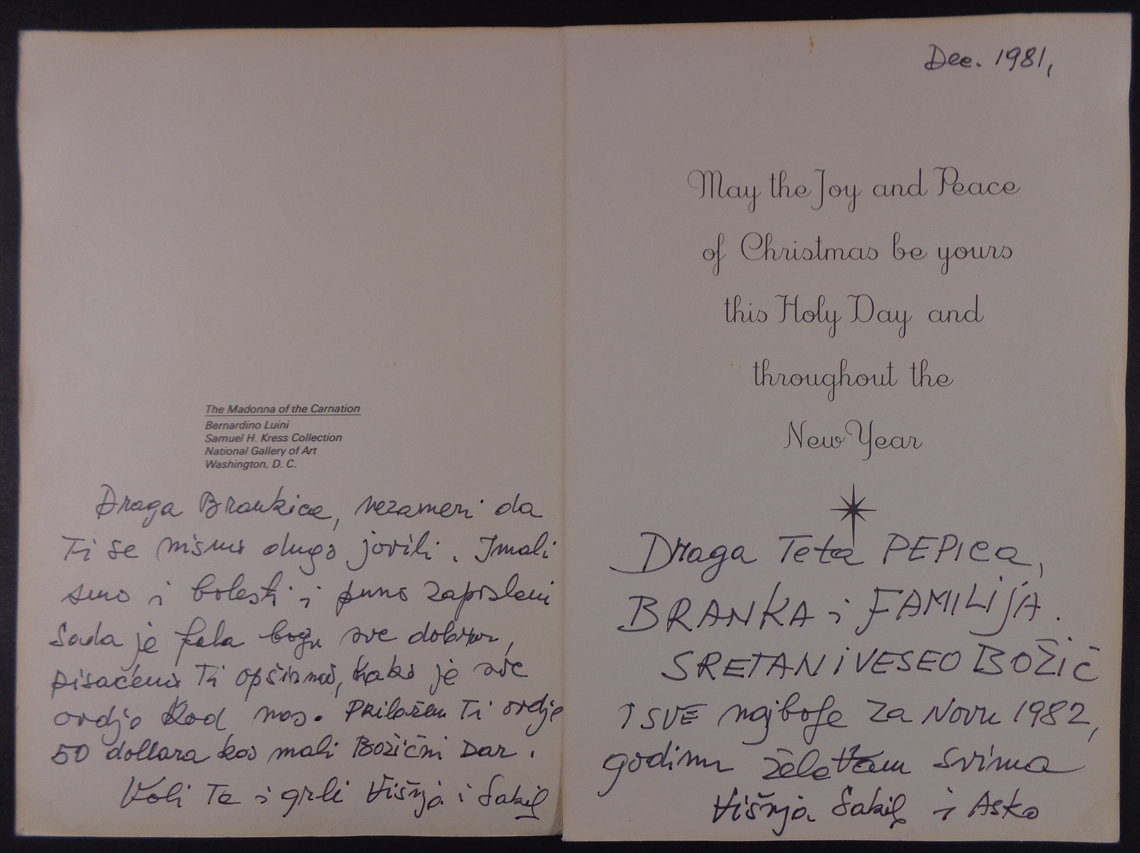 The Madonna of the Carnation
Bernardino Luini
Samuel H. Kress Collection
National Gallery of Art
Washington, D. C.
Draga Brankice, nezameri da
Ti se nismo dugo javili. Imali
smo i bolesti i puno zaposleni
Sada je fala bogu sve dobro,
pisaćemo Ti opširno, kako je sve
ovdje kod nas. Prilažem Ti ovdje
50 dollara kao mali Božićni Dar.
Voli Te i grli Višnja i
Dec. 1981,
May the Joy and Peace
of Christmas be yours
this Holy Day and
throughout the
New Year
Draga Teta PEPICA,
BRANKA i FAMILIJA.
SRETAN i VESEO BOŽIĆ
I SVE najbolje za Novu 1982,
godinu svima
Višnja i Asko